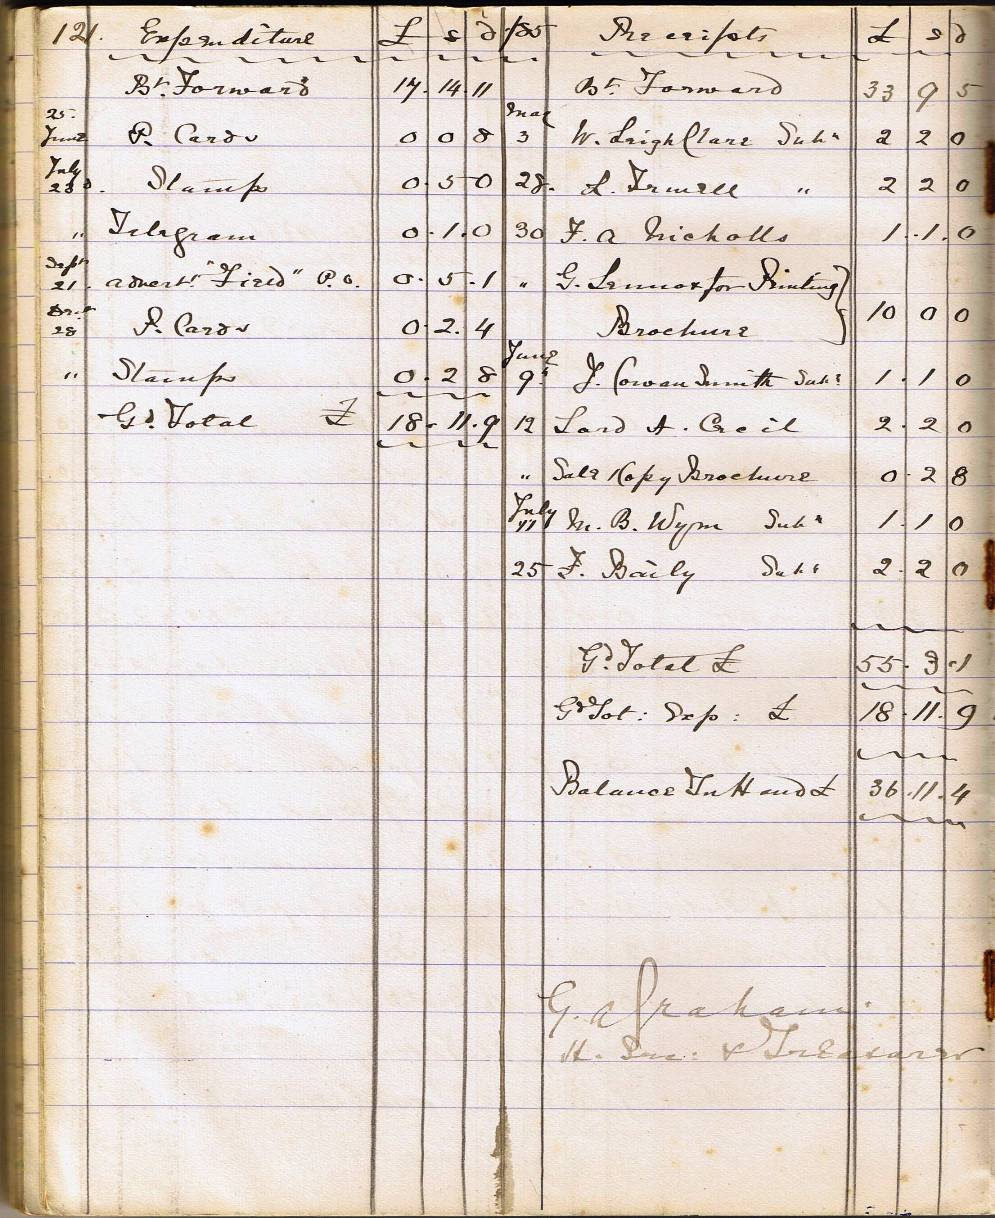 121. Expenditure £ s d
Bt. Forward 17. 14. 11
25
June P. Cards 0 0 8
July
23 Stamps 0. 5 0
" Telegram 0. 1. 0
Sept
21. advert: "Field" P.O. 0. 5. 1
28 P. Cards 0. 2. 4
" Stamps 0. 2 8
Gd. Total £ 18. 11. 9
Receipts £ s d
Bt. Forward 33 9 5
3 W. Leigh Clare Subn 2 2 0
28. L. Irwell " 2 2 0
30 F. A Nicholls 1. 1. 0
" G. Lennox for Printing
Brochure 10 0 0
June
9 J. Cowan Smith Subn 1. 1 0
12 Lord A. Cecil 2. 2 0
" Sale 1 Copy Brochure 0. 2 8
July
11 M. B. Wynn Subn 1. 1 0
25 F. Baily Subn 2. 2 0
Gd. Total £ 55. 3. 1
Gd Tot: Exp: £ 18. 11. 9
Balance In Hand £ 36. 11. 4
G. A Graham.
H. Sec: & Treasurer